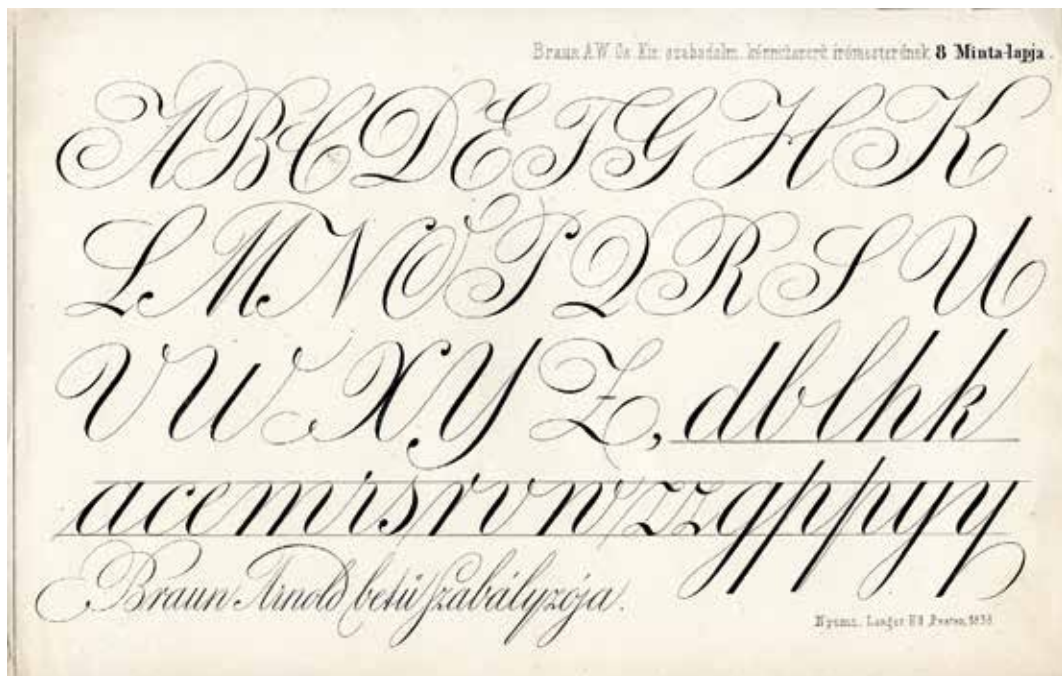 Braun A.W. Cs. Kir. szabadalm. írómesterének 8 Minta-lapja.
A B C D E T G H K
L M N O P Q R S U
V U X Y Z, d b l h k
a c e m r s r v n z z g p p y y
Braun Arnold betű szabályzója.
Nyomt. Pesten, 1858